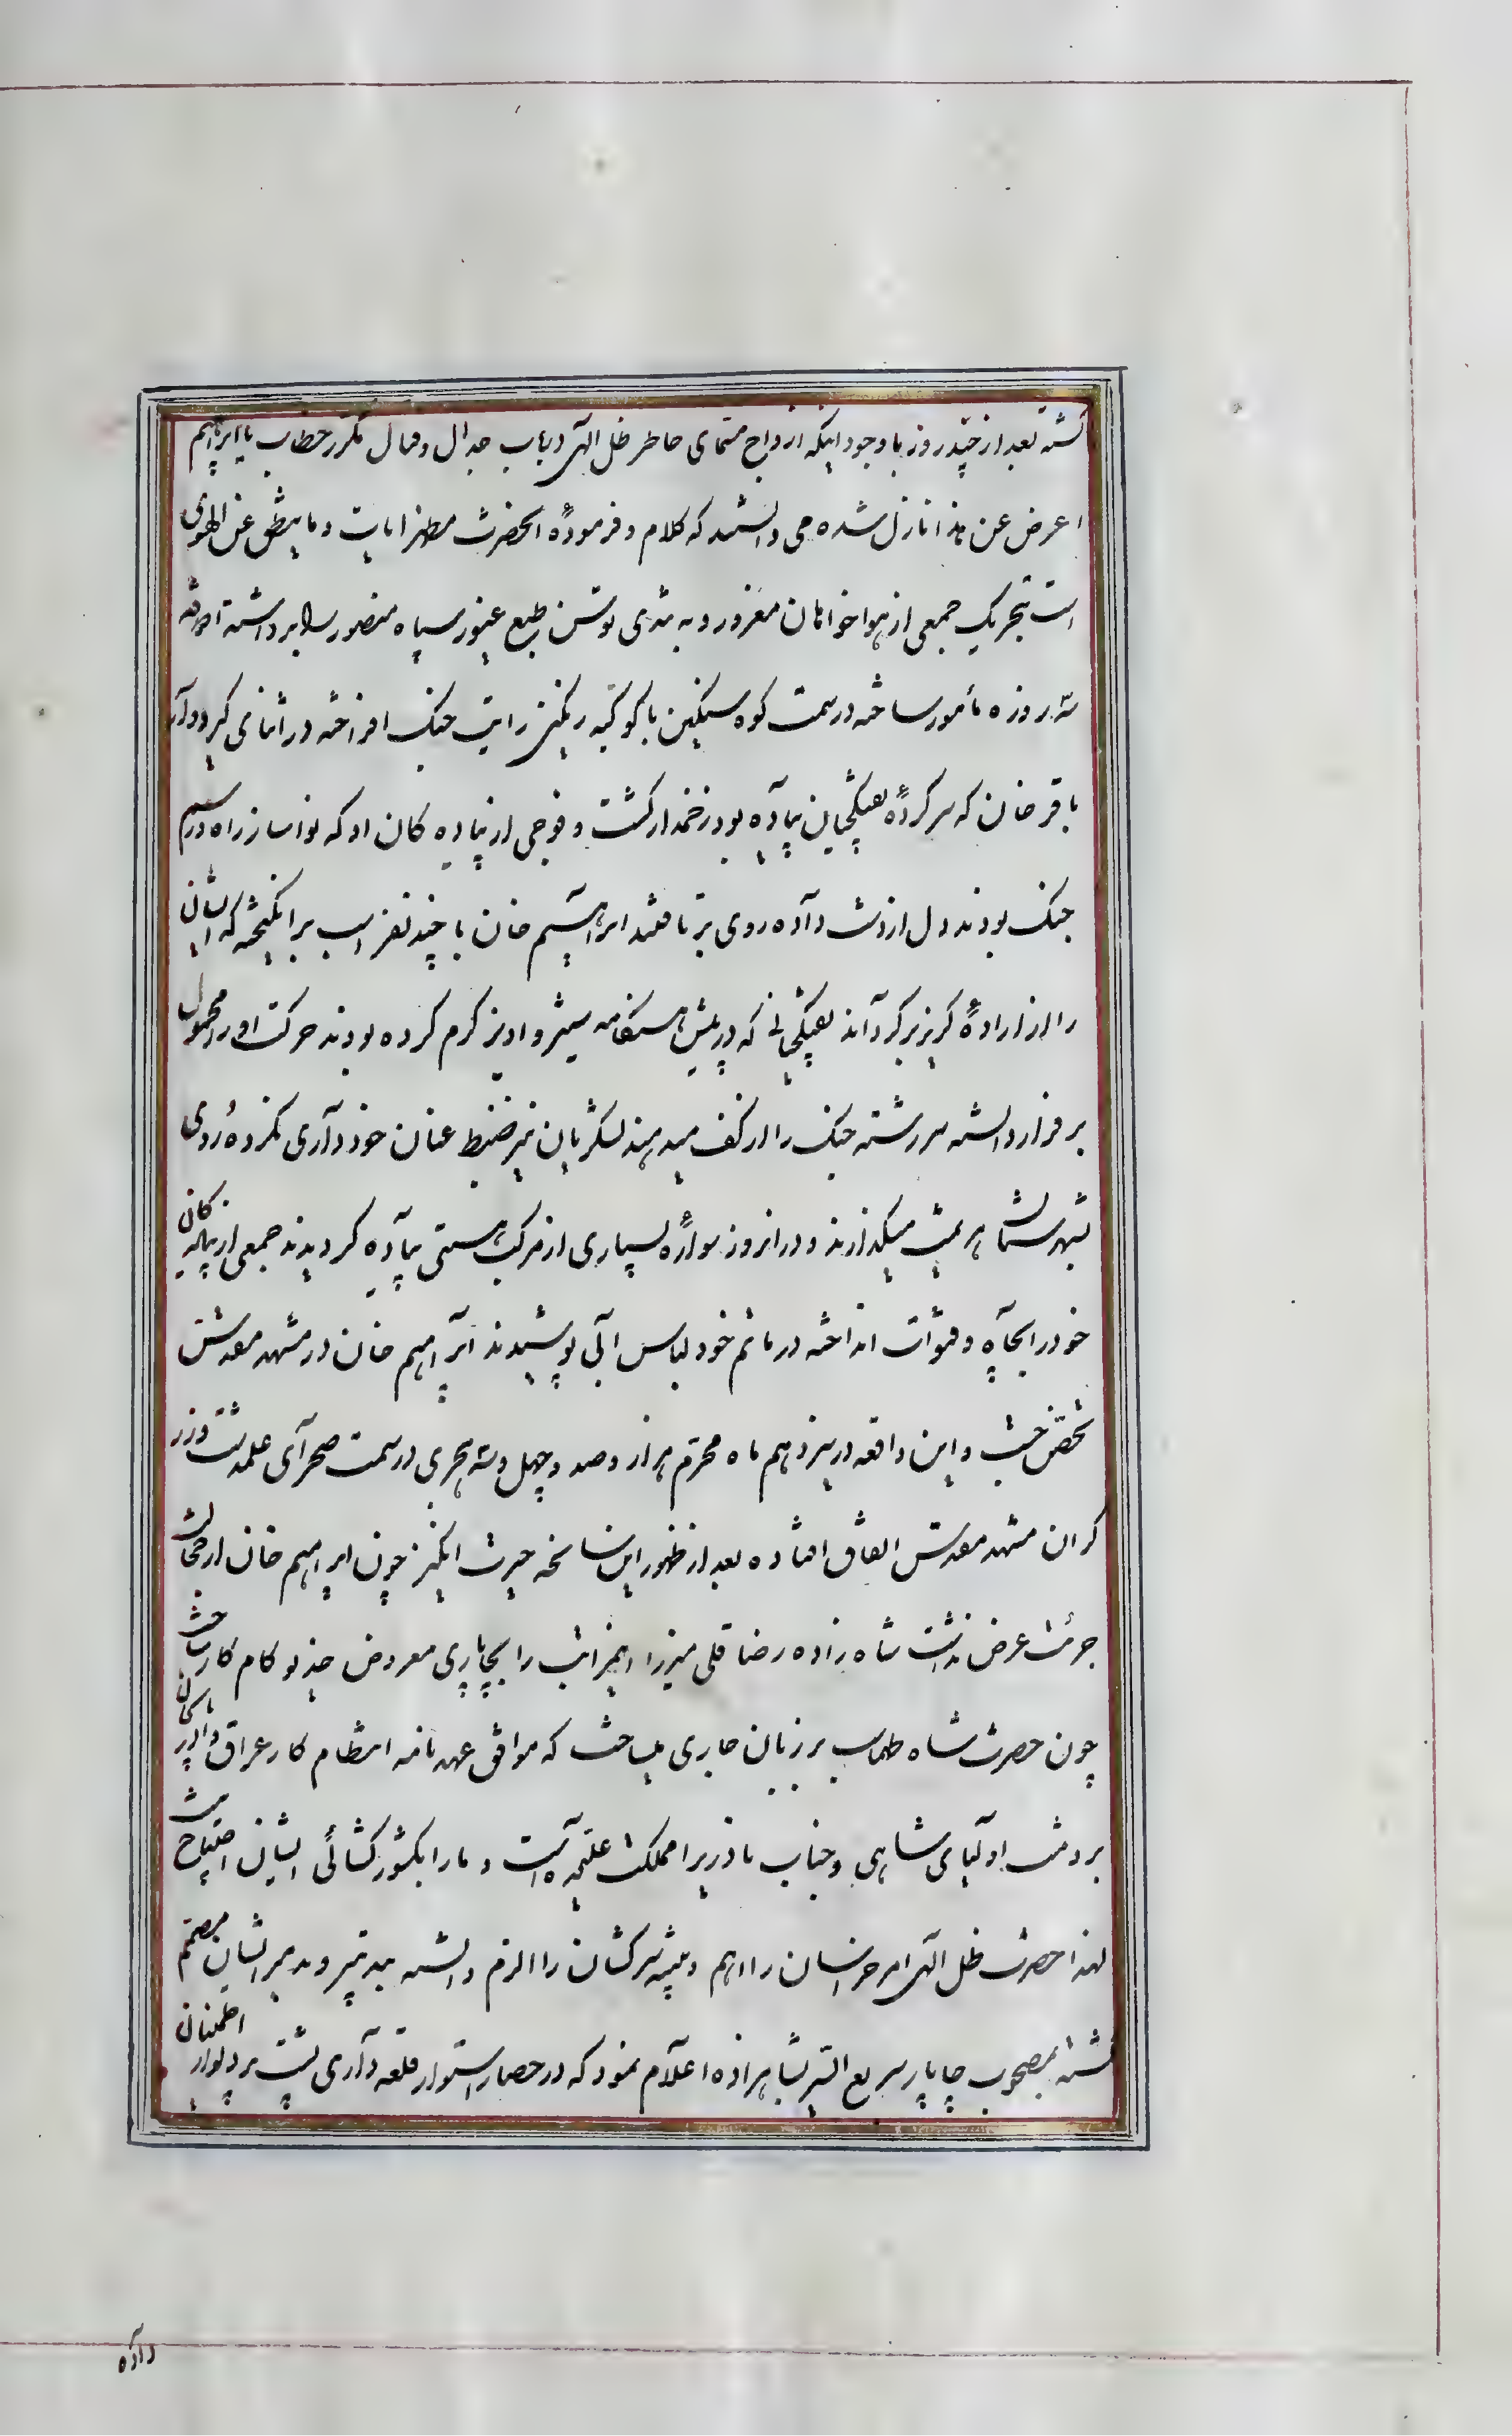 گشته بعد از چند روز باوجود اینکه از واج سمای خاطر ظل الهی در باب جدال و قتال مکرر خطاب یا ابراهیم
اعرض عن هذا نازل شده می دانستند که کلام و فرمودهٔ آنحضرت مظهر آیات و ما ینطق عن الهوی
است بتحریک جمعی از هواخواهان مغرور و به تندی توسن طبع غیور سپاه منصور را برداشته
سه روزه مأمور ساخته در سمت کوه سنگین با کوکبه رنگین رایت جنک افراخته در اثنای گیر و دار
باقر خان که سرکردهٔ تفنکچیان پیاده بود زخمدار کشت و فوجی از پیاده کان او که نواساز راه و رسم
جنک بودند دل از دست داده روی برتافتند ابراهیم خان با چند نفر اسب برانگیخته که ایشان
را از ارادهٔ گریز برگرداند تفنکچیانی که در پیش هنکامه ستیز و آویز گرم کرده بودند حرکت او را محمول
بر فرار دانسته سررشته جنک را از کف میدهند لشکریان نیز ضبط عنان خودداری نکرده روی
بهزیمت میگذارند و در انروز سوارهٔ بسیاری از مرکب هستی پیاده کردیدند جمعی از پیاده کان
خود را بچاه و قنوات انداخته در ماتم خود لباس آبی پوشیدند ابراهیم خان در مشهد مقدس
تحصن جست و این واقعه در سیزدهم ماه محرم هزار و صد و چهل و سه هجری در سمت صحرای
کران مشهد مقدس اتفاق افتاده بعد از ظهور این سانحه حیرت انکیز چون ابراهیم خان از خجالت
جرئت عرض نداشت شاه زاده رضا قلی میرزا اینمراتب را بچاپاری معروض خدیو کام کار ساخت
چون حضرت شاه طهماسب بر زبان جاری میساخت که موافق عهدنامه انتظام کار عراق و آذربایکان
بر ذمت اولیای شاهی و جناب نادریرا مملکت علیحده است و ما را بکشور کشائی ایشان احتیاج نیست
لهذا حضرت ظل الهی امر خراسان را اهم و تنبیه سرکشان را الزم دانسته بتدبیر و تدمیر ایشان مصمم
گشته بمصحوب چاپار سریع السیر بشاهزاده اعلام نمود که در حصار استوار قلعه داری پشت بر دیوار اطمنان
داده